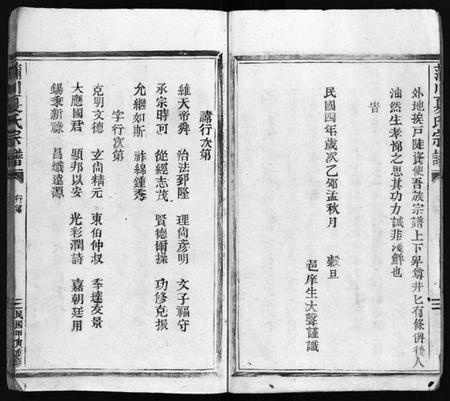 蒲川夏氏宗譜
外地挨戶陡資使吾族宗譜上下卑尊井匕有條俾後人
油然生孝悌之思其功力誠非淺鮮也
旹
民國四年歲次乙卯孟秋月 穀旦
邑庠生大聲謹識
諱行次第
維天帝舜 治法郅隆 理尚彥明 文子福守
承宗時可 從經志茂 賢德爾操 功修克振
允繼如斯 祚綿鍾秀
字行次第
克明文德 玄尚精元 東伯仲叔 季達友景
大應國君 顯邦以安 光彩潤詩 嘉朝廷用
錫秉新祿 昌熾遠源
蒲川夏氏宗譜
行第
三
民國甲寅重修